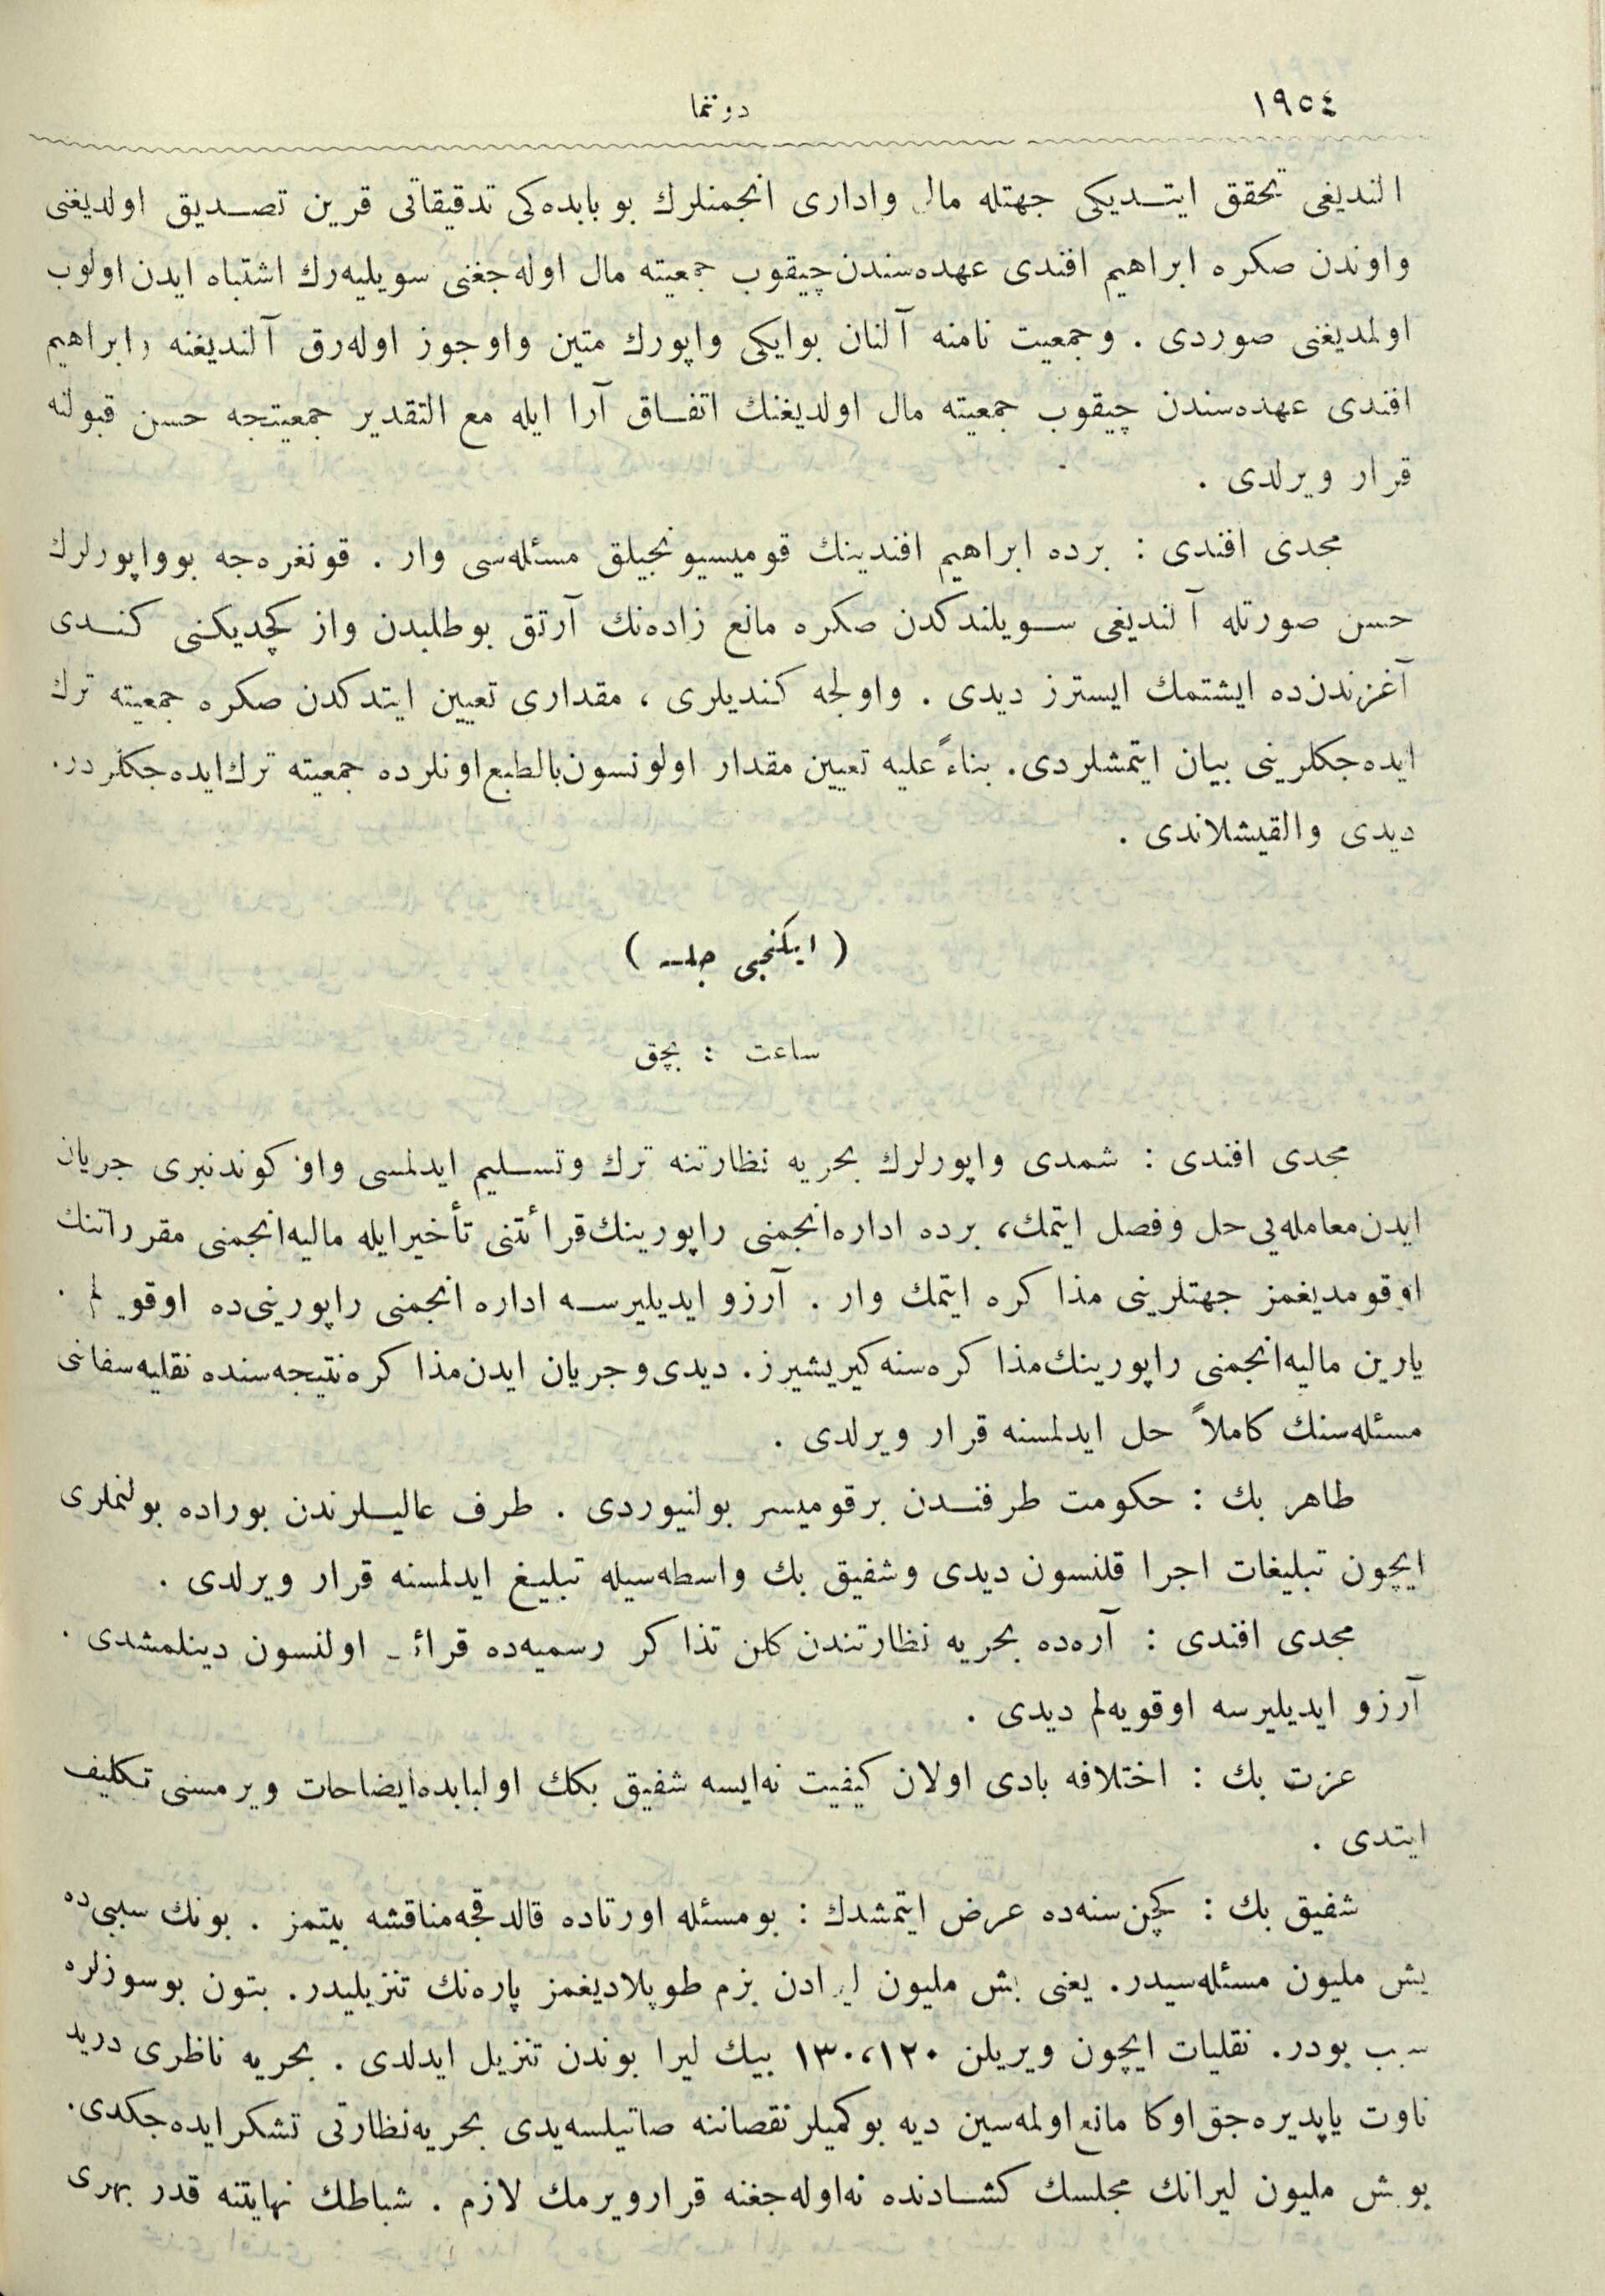 ١٩٥٤
دوننما
الندیغی تحقق ایتدیکی جهتله مال واداری انجمنلرك بو بابده‌کی تدقیقاتی قرین تصدیق اولدیغنی
واوندن صکره ابراهیم افندی عهده‌سندن چیقوب جمعیته مال اوله‌جغنی سویلیه‌رك اشتباه ایدن اولوب
اولمدیغنی صوردی . وجمعیت نامنه آلنان بوایکی واپورك متین واوجوز اوله‌رق آلندیغنه ، ابراهیم
افندی عهده‌سندن چیقوب جمعیته مال اولدیغنك اتفاق آرا ایله مع التقدیر جمعیتجه حسن قبولنه
قرار ویرلدی .
مجدی افندی : برده ابراهیم افندینك قومیسیونجیلق مسئله‌سی وار . قونغره‌جه بوواپورلرك
حسن صورتله آلندیغی سویلندکدن صکره مانع زاده‌نك آرتق بوطلبدن واز کچدیکنی کندی
آغزندن‌ده ایشتمك ایسترز دیدی . واولجه کندیلری ، مقداری تعیین ایتدکدن صکره جمعیته ترك
ایده‌جکلرینی بیان ایتمشلردی. بناءً علیه تعیین مقدار اولونسون بالطبع اونلرده جمعیته ترك ایده‌جکلردر.
دیدی والقیشلاندی .
( ایکنجی جلسه )
ساعت : بچق
مجدی افندی : شمدی واپورلرك بحریه نظارتنه ترك وتسلیم ایدلمسی واو کوندنبری جریان
ایدن معامله‌یی حل وفصل ایتمك، برده اداره انجمنی راپورینك قرائتنی تأخیر ایله مالیه انجمنی مقرراتنك
اوقومدیغمز جهتلرینی مذاکره ایتمك وار . آرزو ایدیلیرسه اداره انجمنی راپورینی‌ده اوقویه‌لم .
یارین مالیه انجمنی راپورینك مذاکره‌سنه کیریشیرز. دیدی وجریان ایدن مذاکره نتیجه‌سنده نقلیه سفائنی
مسئله‌سنك کاملاً حل ایدلمسنه قرار ویرلدی .
طاهر بك : حکومت طرفندن برقومیسر بولنیوردی . طرف عالیلرندن بوراده بولنملری
ایچون تبلیغات اجرا قلنسون دیدی وشفیق بك واسطه‌سیله تبلیغ ایدلمسنه قرار ویرلدی .
مجدی افندی : آره‌ده بحریه نظارتندن کلن تذاکر رسمیه‌ده قرائت اولنسون دینلمشدی .
آرزو ایدیلیرسه اوقویه‌لم دیدی .
عزت بك : اختلافه بادی اولان کیفیت نه‌ایسه شفیق بكك اولبابده ایضاحات ویرمسنی تکلیف
ایتدی .
شفیق بك : کچن سنه‌ده عرض ایتمشدك : بومسئله اورتاده قالدقجه مناقشه بیتمز . بونك سببی‌ده
بش ملیون مسئله‌سیدر. یعنی بش ملیون لیرادن بزم طوپلادیغمز پاره‌نك تنزیلیدر. بتون بوسوزلره
سبب بودر. نقلیات ایچون ویریلن ١٣٠،١٢٠ بیك لیرا بوندن تنزیل ایدلدی . بحریه ناظری درید
ناوت یاپدیره‌جق اوکا مانع اولمه‌سین دیه بوکمیلر نقصاننه صاتیلسه‌یدی بحریه نظارتی تشکر ایده‌جکدی.
بو بش ملیون لیرانك مجلسك کشادنده نه‌اوله‌جغنه قرارویرمك لازم . شباطك نهایتنه قدر بهری